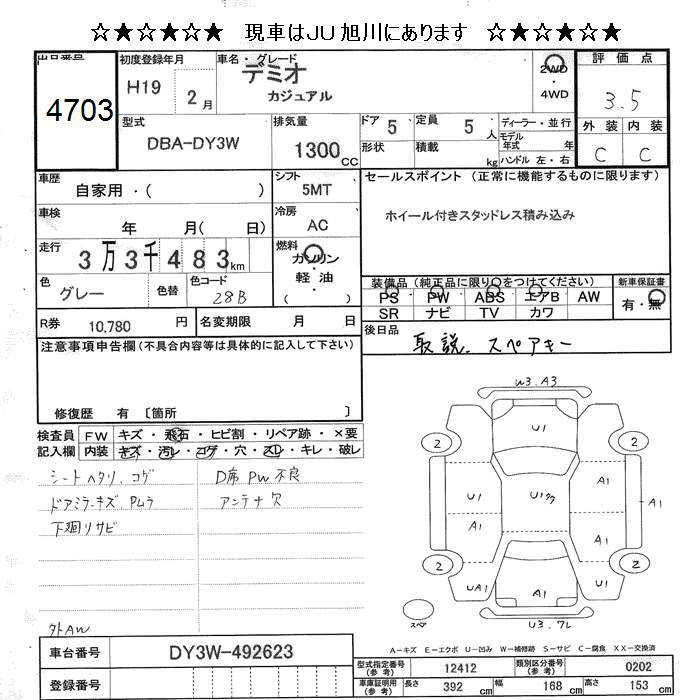 ☆★☆★☆★ 現車はJU旭川にあります ☆★☆★☆★
出品番号 初度登録年月 車名・グレード 評価点
4703 H19 2月 デミオ カジュアル 2WD・4WD 3.5
型式 排気量 ドア 5 定員 5人 ディーラー・並行 外装 内装
DBA-DY3W 1300cc 形状 積載 kg モデル年式 年 ハンドル 左・右 C C
車歴 自家用・( ) シフト 5MT セールスポイント (正常に機能するものに限ります)
車検 年 月( 日) 冷房 AC ホイール付きスタッドレス積み込み
走行 3万3千483km 燃料 ガソリン 軽油 ( )
色 グレー 色替 色コード 28B 装備品 (純正品に限り○をつけてください) 新車保証書
PS PW ABS エアB AW 有・無
SR ナビ TV カワ
R券 10,780 円 名変期限 月 日 後日品 取説. スペアキー
注意事項申告欄(不具合内容等は具体的に記入して下さい)
修復歴 有 〔箇所 〕
検査員記入欄 FW キズ・飛石・ヒビ割・リペア跡・×要
内装 キズ・汚レ・コゲ・穴・スレ・キレ・破レ
シートヘタリ. コゲ D席PW不良
ドアミラーキズ. Pムラ アンテナ欠
下廻リサビ
外AW
U3.A3
U1
2 2
U1 A1
U1 A1
A1 A1
2 2
UA1 A1 U1
スペア
U3.ワレ
A-キズ E-エクボ U-凹み W-補修跡 S-サビ C-腐食 XX-交換済
車台番号 DY3W-492623
登録番号
型式指定番号(参考) 12412 類別区分番号(参考) 0202
車庫証明用(参考) 長さ 392cm 幅 168cm 高さ 153cm